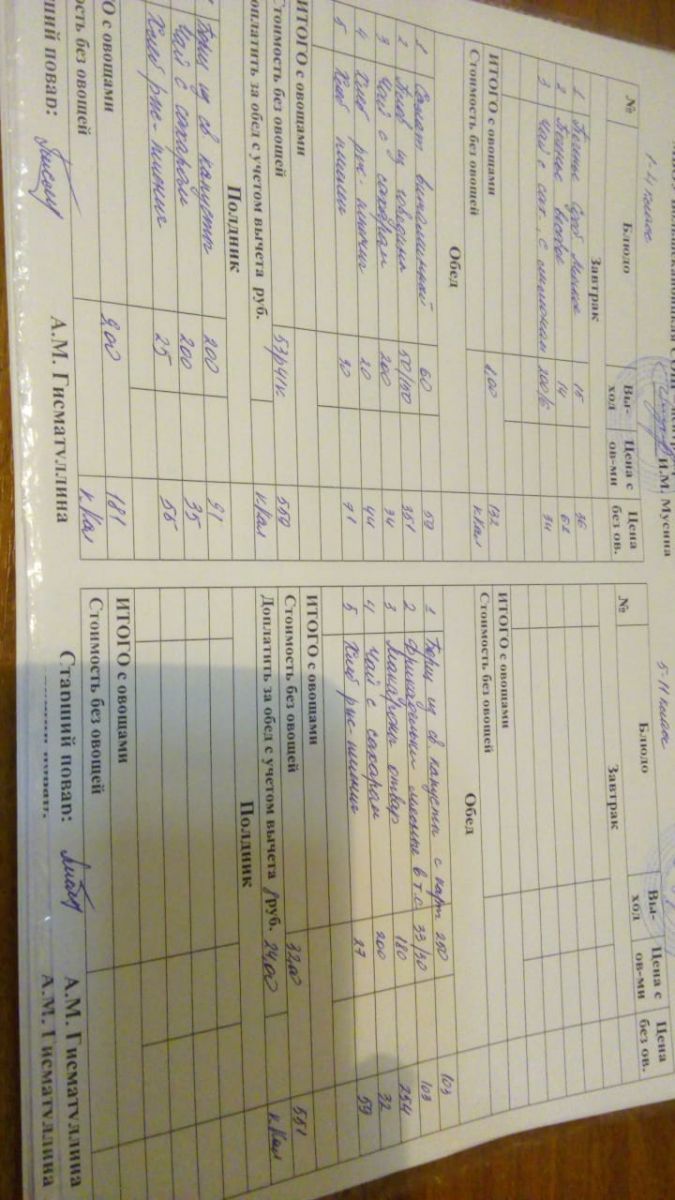 СОШ
И.М. Мусина
1-4 класс
№ Блюдо Вы-ход Цена с ов-ми Цена без ов.
Завтрак
1 Печенье 15 56
2 14 62
3 Чай с сах., с лимоном 200/6 34
ИТОГО с овощами 200 132
Стоимость без овощей кКал
Обед
1 Салат витаминный 60 59
2 50/150 351
3 Чай с сахаром 200 34
4 Хлеб рж-пшенич 20 44
5 Хлеб пшенич 30 71
ИТОГО с овощами
Стоимость без овощей 53р41к 559
Доплатить за обед с учетом вычета руб. кКал
Полдник
Борщ из св капусты 200 91
Чай с сахаром 200 35
Хлеб рже-пшенич 25 55
с овощами 200 181
без овощей кКал
повар: А.М. Гисматуллина
5-11 класс
№ Блюдо Вы-ход Цена с ов-ми Цена без ов.
Завтрак
ИТОГО с овощами
Стоимость без овощей
Обед
1 Борщ из св. капусты с карт 250 103
2 Фрикадельки мясные в т.с. 33/30 103
3 Макароны отвар 180 254
4 Чай с сахаром 200 32
5 Хлеб рже-пшенич 27 59
ИТОГО с овощами
Стоимость без овощей 32,00 551
Доплатить за обед с учетом вычета руб. 24,00 кКал
Полдник
ИТОГО с овощами
Стоимость без овощей
Старший повар: А.М. Гисматуллина
А.М. Гисматуллина